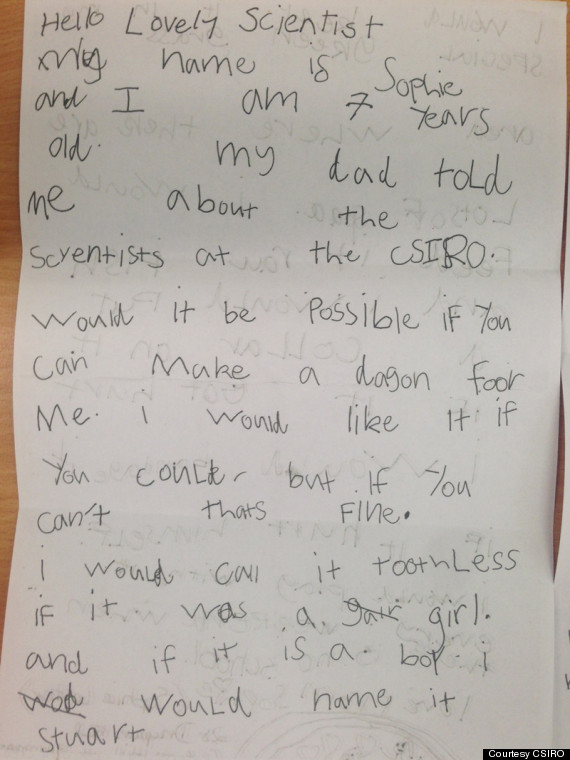 Hello Lovely Scientist
my name is Sophie
and I am 7 Years
old. my dad told
me about the
scyentists at the CSIRO.
Would it be possible if You
can Make a dagon foor
Me. I would like it if
You could but if You
can't thats Fine.
i would call it toothLess
if it was a girl.
and if it is a boy i
would name it
Stuart
Courtesy CSIRO